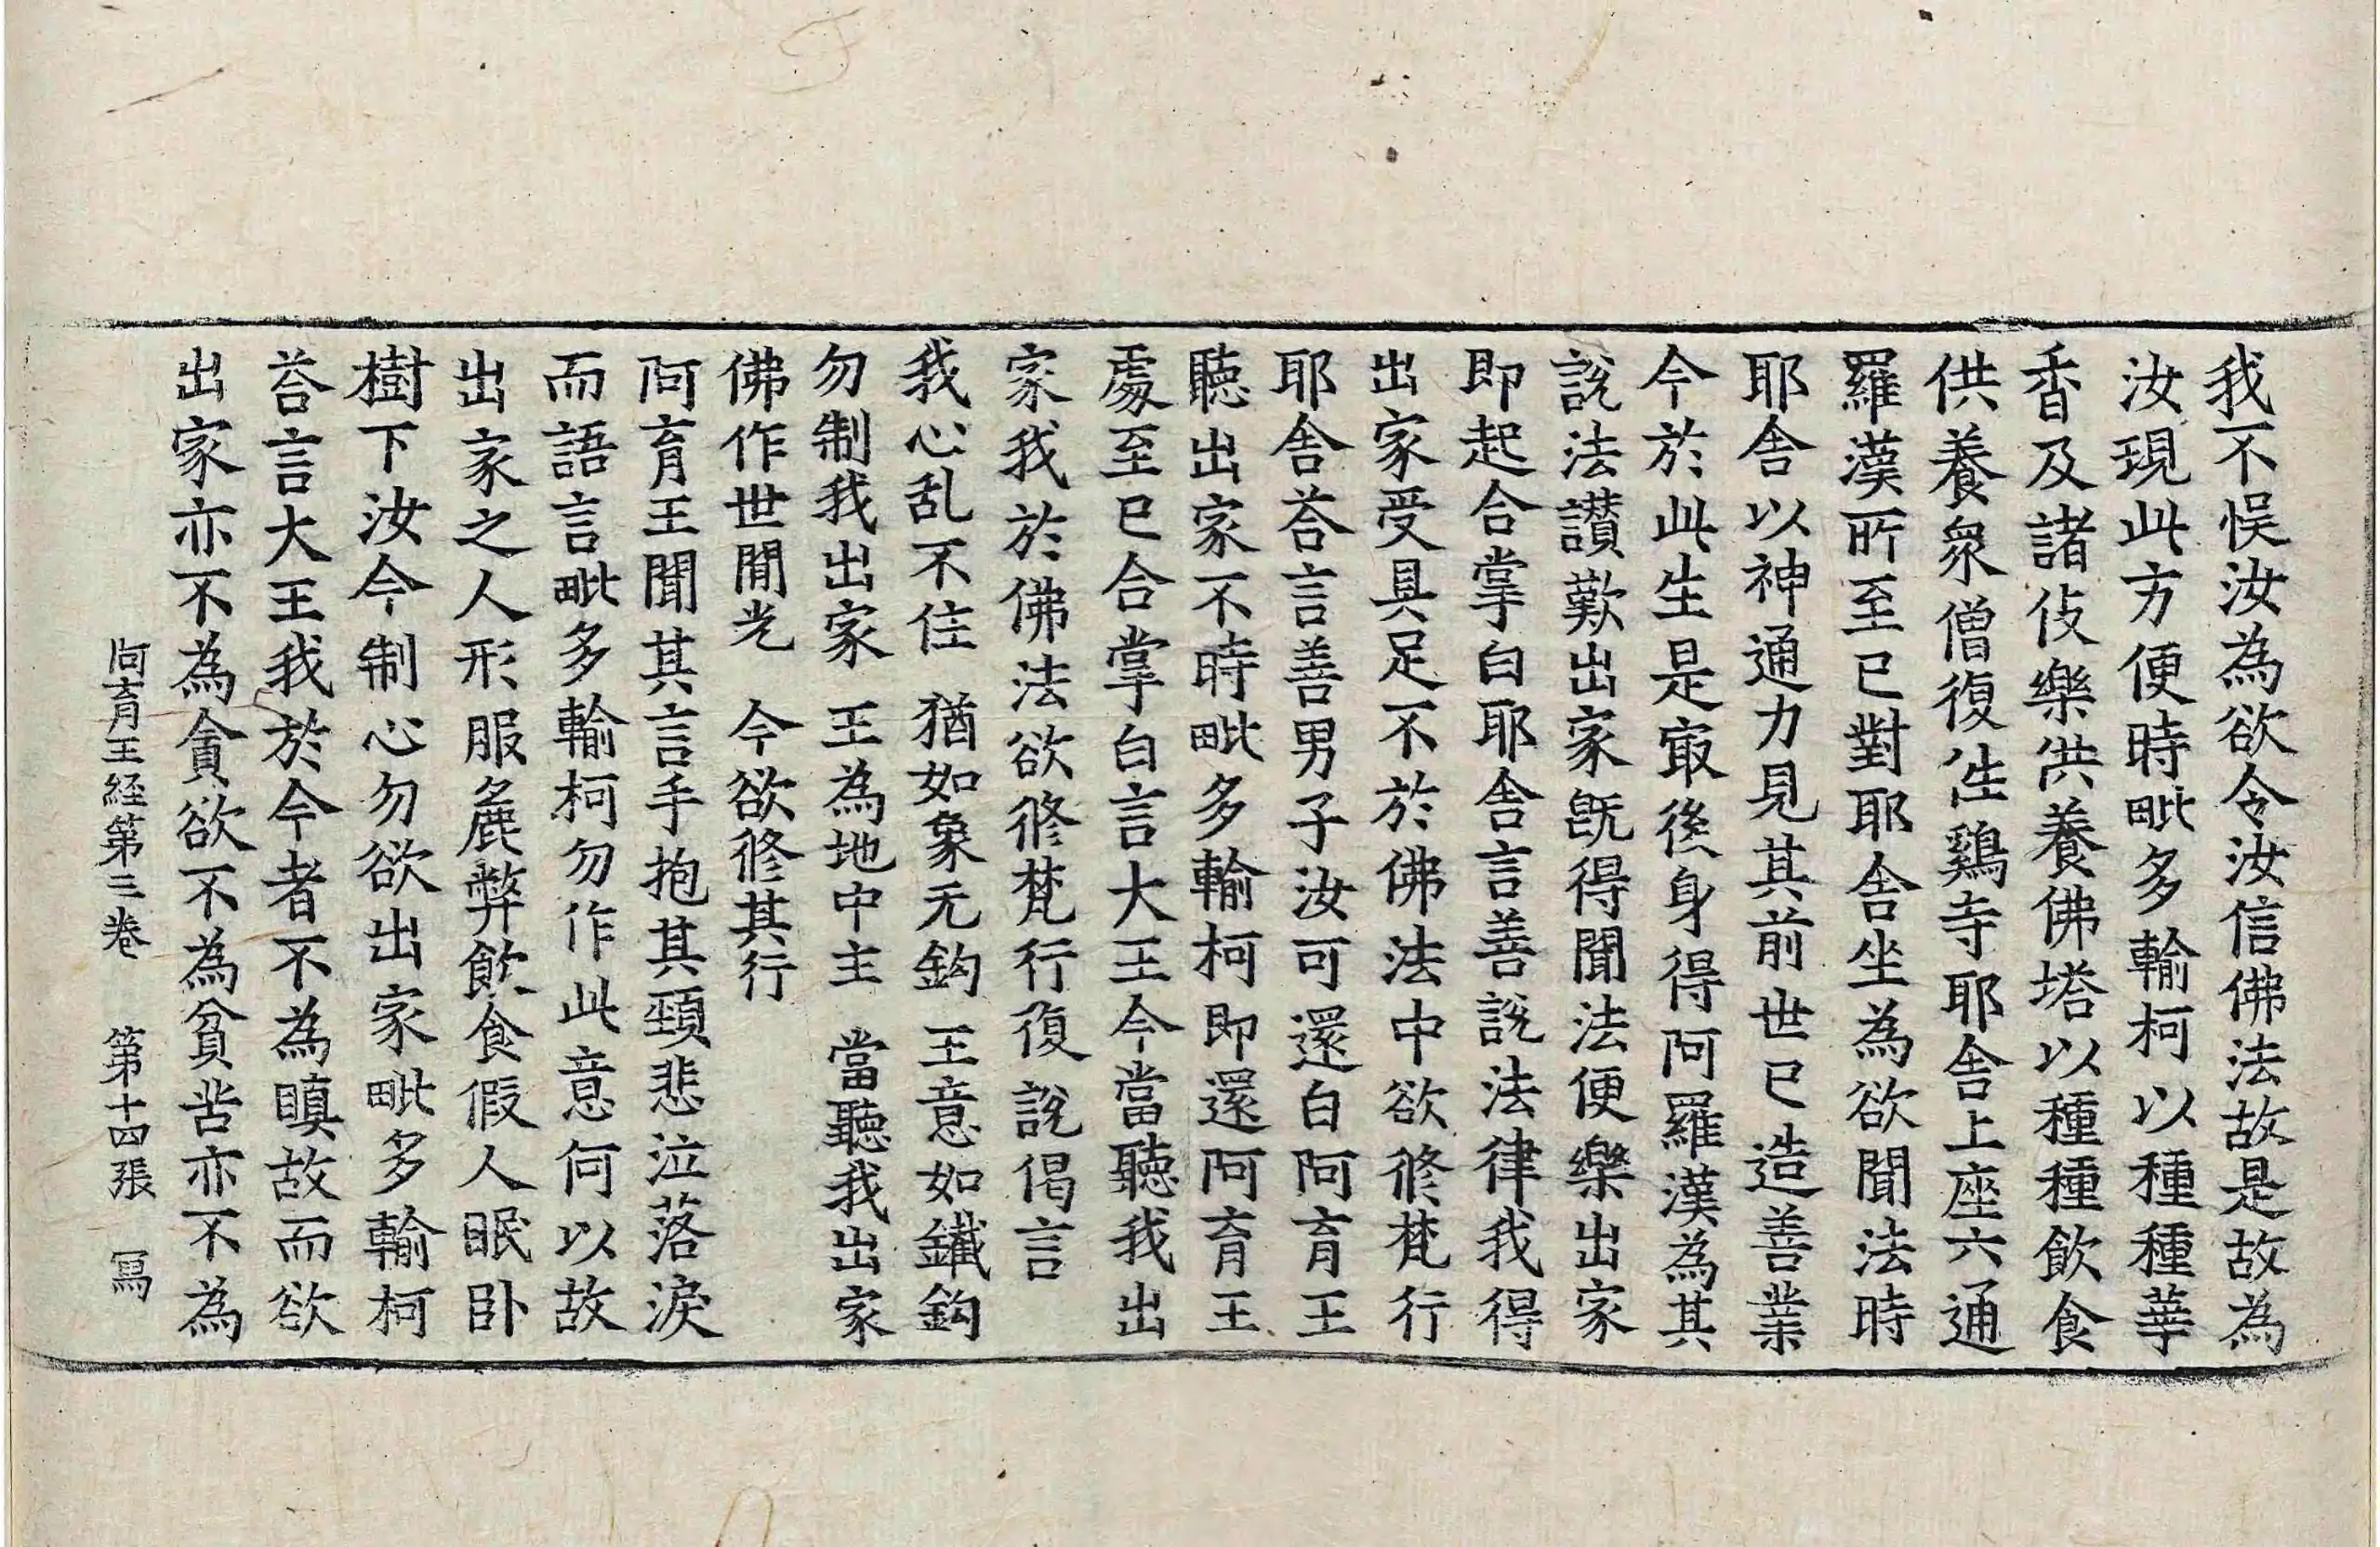 我不悮汝為欲令汝信佛法故是故為
汝現此方便時毗多輸柯以種種華
香及諸伎樂供養佛塔以種種飲食
供養衆僧復往鷄寺耶舍上座六通
羅漢所至已對耶舍坐為欲聞法時
耶舍以神通力見其前世已造善業
今於此生是㝡後身得阿羅漢為其
說法讃歎出家旣得聞法便樂出家
即起合掌白耶舍言善說法律我得
出家受具足不於佛法中欲修梵行
耶舍荅言善男子汝可還白阿育王
聽出家不時毗多輸柯即還阿育王
處至已合掌白言大王今當聽我出
家我於佛法欲修梵行復說偈言
我心乱不住　猶如象无鉤　王意如鐵鉤
勿制我出家　王為地中主　當聽我出家
佛作世間光　今欲修其行
阿育王聞其言手抱其頸悲泣落淚
而語言毗多輸柯勿作此意何以故
出家之人形服麁弊飲食假人眠卧
樹下汝今制心勿欲出家毗多輸柯
荅言大王我於今者不為瞋故而欲
出家亦不為貪欲不為貧苦亦不為
阿育王経第三卷　第十四張　冩